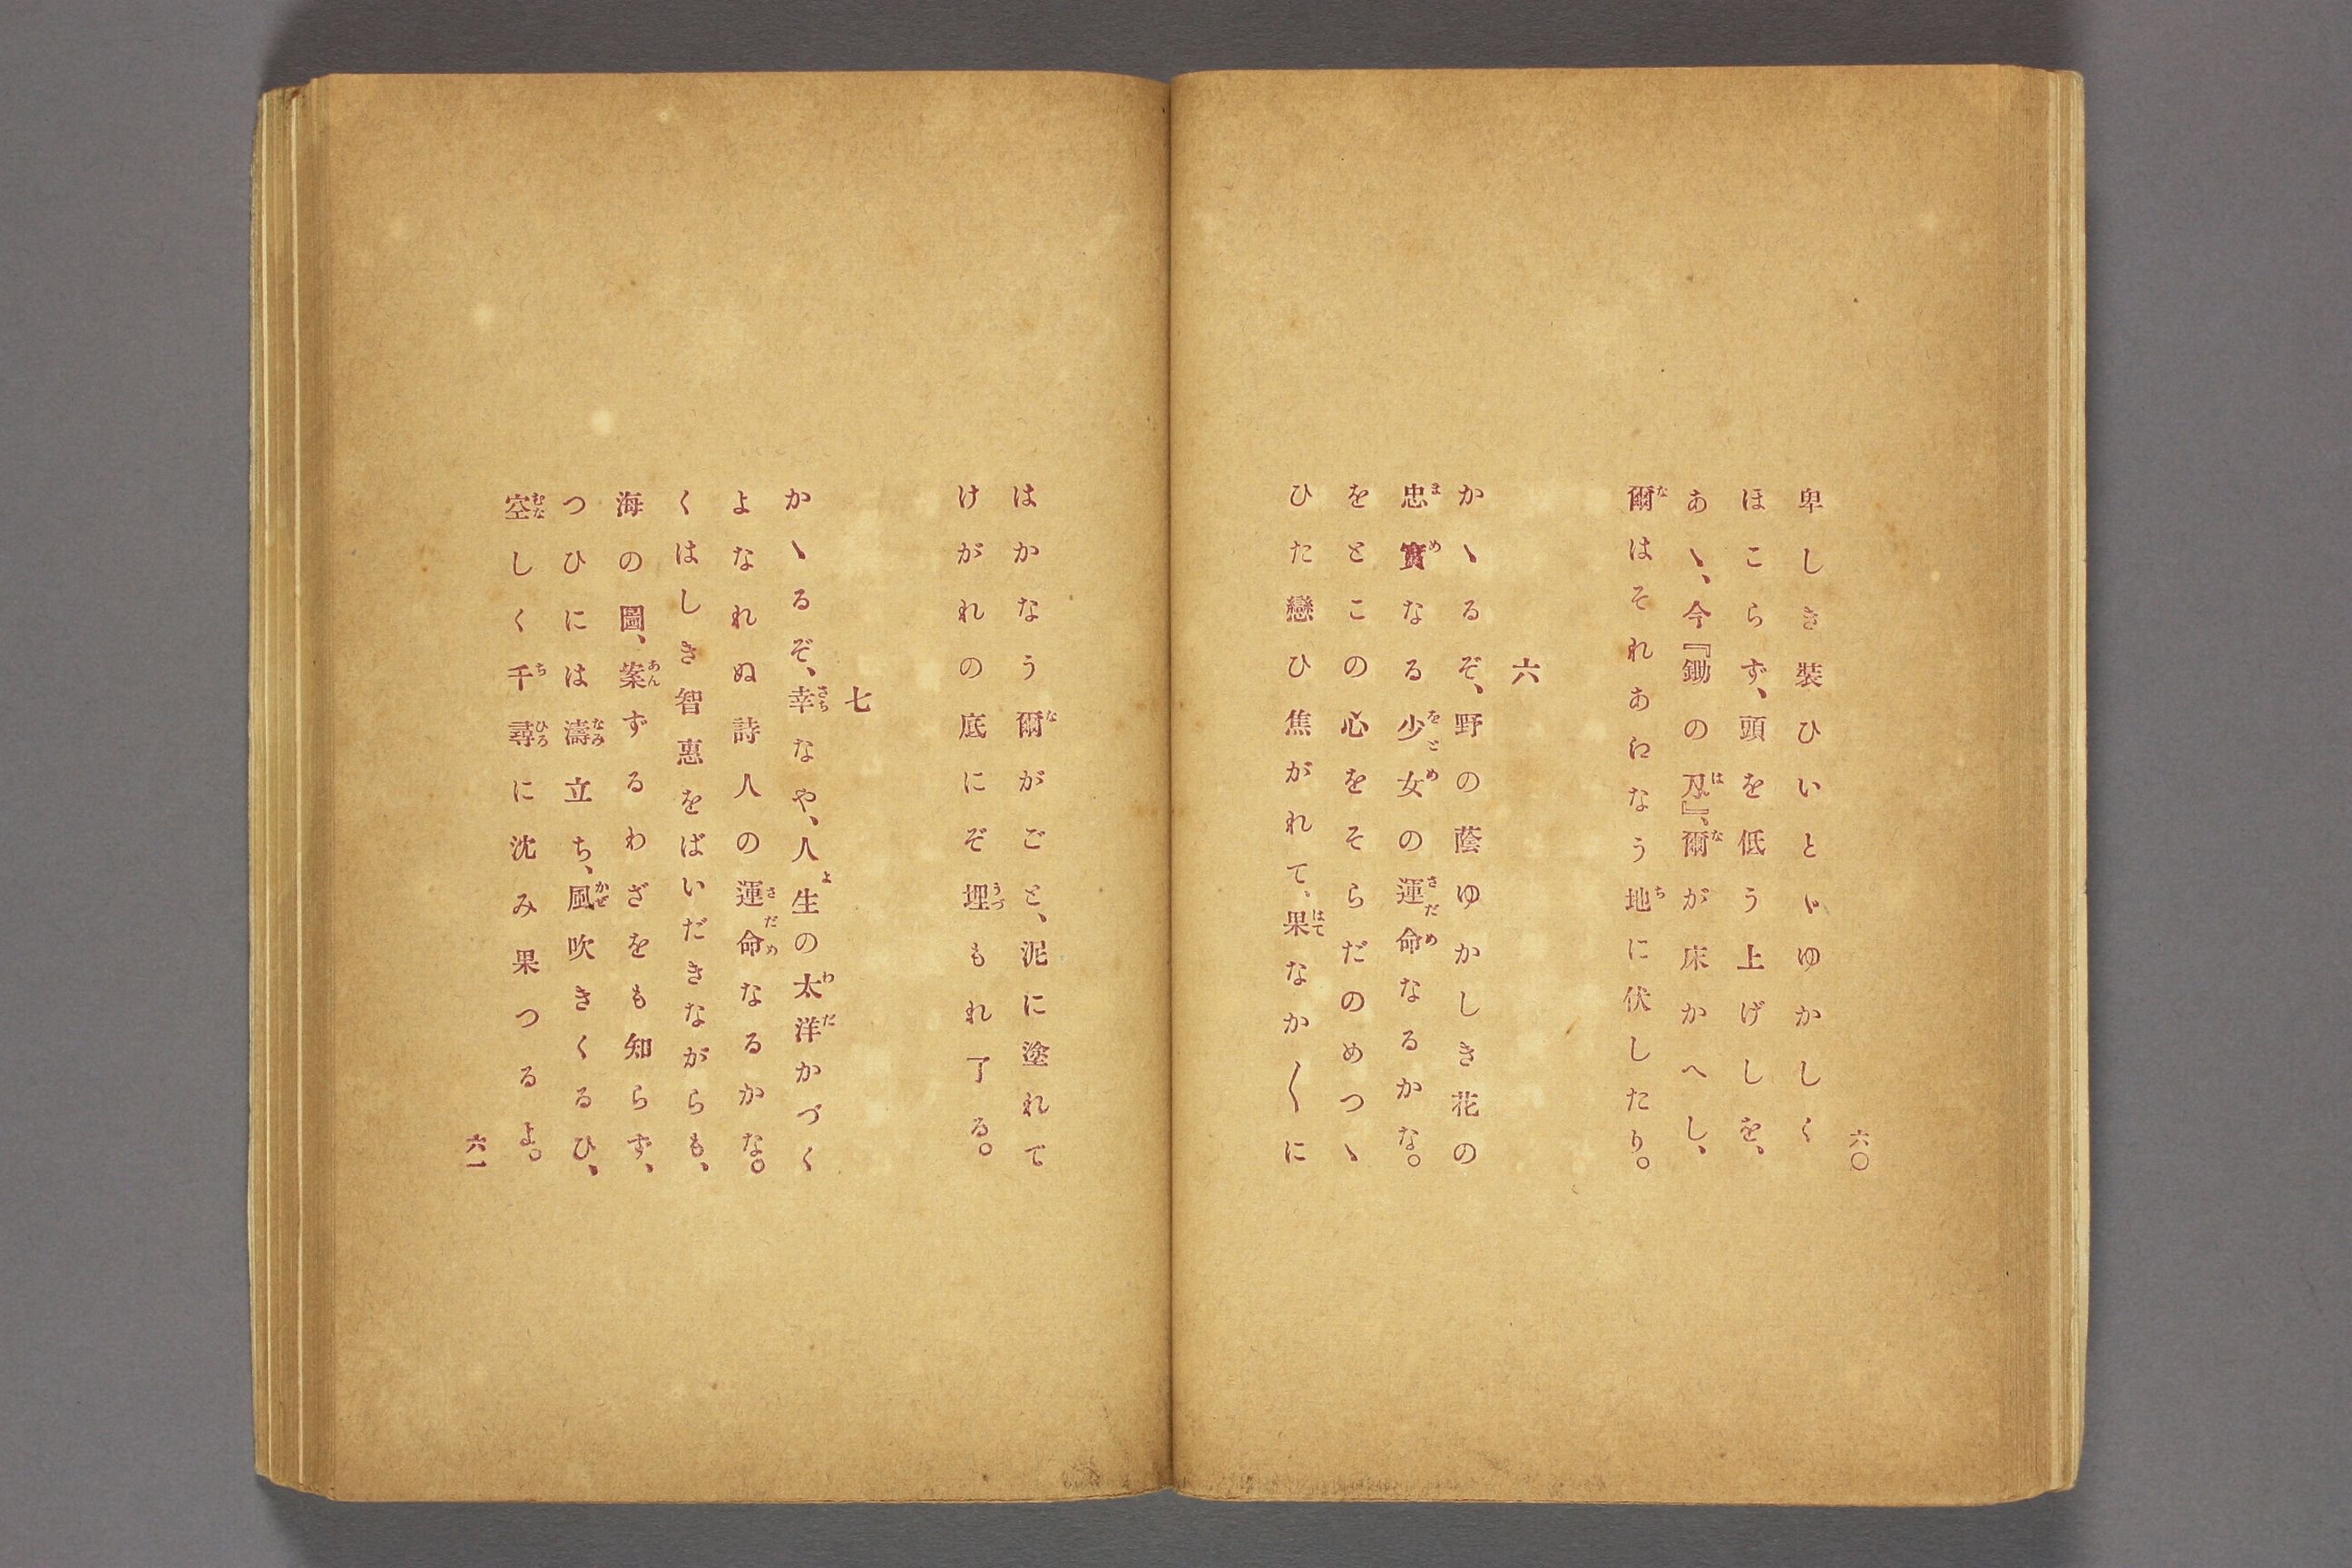 六〇
卑しき裝ひいとゞゆかしく
ほこらず、頭を低う上げしを、
あゝ、今『鋤の刃』、爾が床かへし、
爾はそれあへなう地に伏したり。
六
かゝるぞ、野の蔭ゆかしき花の
忠實なる少女の運命なるかな。
をとこの心をそらだのめつゝ
ひた戀ひ焦がれて、果なか〱に
はかなう爾がごと、泥に塗れて
けがれの底にぞ埋もれ了る。
七
かゝるぞ、幸なや、人生の太洋かづく
よなれぬ詩人の運命なるかな。
くはしき智惠をばいだきながらも、
海の圖、案ずるわざをも知らず、
つひには濤立ち、風吹きくるひ、
空しく千尋に沈み果つるよ。
六一